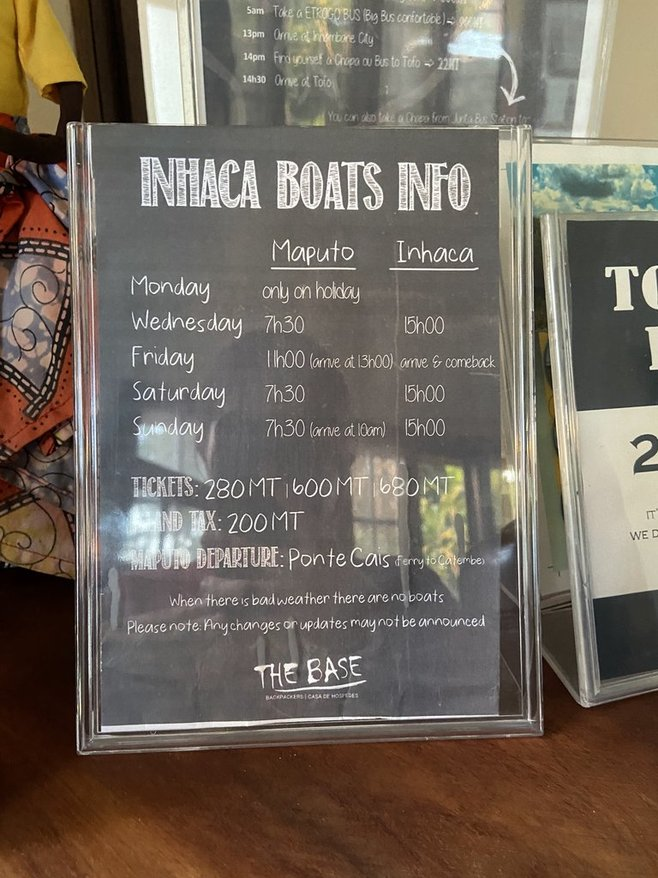 5am Take a ETRAGO BUS (Big Bus confortable)
13pm Arrive at Inhambane City
14pm Find yourself a Chapa ou Bus to Tofo → 22MT
14h30 Arrive at Tofo
You can also take a Chapa from Junta Bus Station to
INHACA BOATS INFO
Maputo Inhaca
Monday only on holiday
Wednesday 7h30 15h00
Friday 11h00 (arrive at 13h00) arrive & comeback
Saturday 7h30 15h00
Sunday 7h30 (arrive at 10am) 15h00
TICKETS: 280MT | 600MT | 680MT
ISLAND TAX: 200MT
MAPUTO DEPARTURE: Ponte Cais (Ferry to Catembe)
When there is bad weather there are no boats
Please note: Any changes or updates may not be announced
THE BASE
BACKPACKERS | CASA DE HOSPEDES
TO
2
IT'
WE D